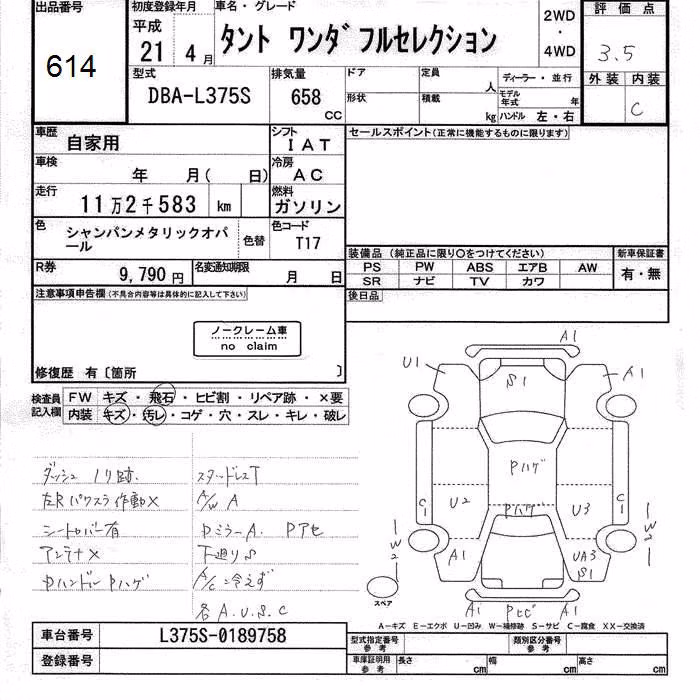 出品番号 614
初度登録年月 平成 21 4月
車名・グレード タント ワンダフルセレクション
2WD・4WD
評価点 3.5
外装 内装 C
型式 DBA-L375S
排気量 658 CC
ドア 定員 人
形状 積載 kg
ディーラー・並行
モデル年式 年
ハンドル 左・右
車歴 自家用
シフト IAT
車検 年 月( 日)
冷房 AC
走行 11万2千583 km
燃料 ガソリン
色 シャンパンメタリックオパール 色替
色コード T17
R券 9,790円
名変通知期限 月 日
セールスポイント(正常に機能するものに限ります)
装備品 (純正品に限り○をつけてください)
PS PW ABS エアB AW
SR ナビ TV カワ
新車保証書 有・無
後日品
注意事項申告欄(不具合内容等は具体的に記入して下さい)
ノークレーム車
no claim
修復歴 有〔箇所 〕
検査員記入欄
FW キズ・飛石・ヒビ割・リペア跡・×要
内装 キズ・汚レ・コゲ・穴・スレ・キレ・破レ
ダッシュ ノリ跡.
左R パワスラ作動×
シートカバー有
アンテナ×
Pハンドル Pハゲ
スタッドレスT
A/W A
DミラーA. Pアセ
下廻りS
A/C 冷えず
各A.U.S.C
A1
U1
S1
A1
Pハゲ
C1
U2
Pハゲ
U3
C1
W2
W2
A1
UA3
S1
スペア
A1
Pヒビ
A1
A-キズ E-エクボ U-凹み W-補修跡 S-サビ C-腐食 XX-交換済
車台番号 L375S-0189758
登録番号
型式指定番号 参考
類別区分番号 参考
車庫証明用 参考
長さ cm
幅 cm
高さ cm